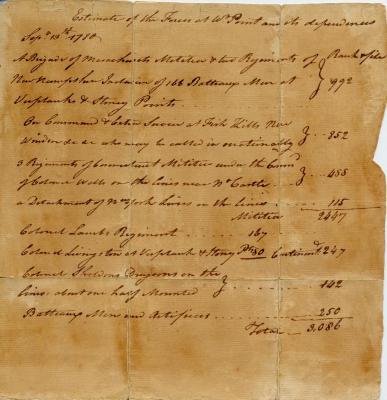 Estimate of the Forces at Wt Point and its dependences
Sepr 13th 1780
A Brigade of Massachusets Militia & two Regiments of } Rank & file
New Hampshire Inclusive of 166 Batteaux Men at } 992
Verplanks & Stoney Points
On Command & Extra Service at Fish Kills New
Windsor &c &c who may be called in occationally } 852
3 Regiments of Connecticut Militia under the Comd
of Colonel Wells on the lines near Nh Castle } 488
a Detachment of N York Levies on the lines 115
Militia 2447
Colonel Lambs Regiment 167
Colonel Livingston at Verplank & Stoney Pts 80 Continent. 247
Colonel Sheldons Dragoons on the }
lines about one half Mounted } 142
Batteaux Men and Artificers 250
Total 3,086